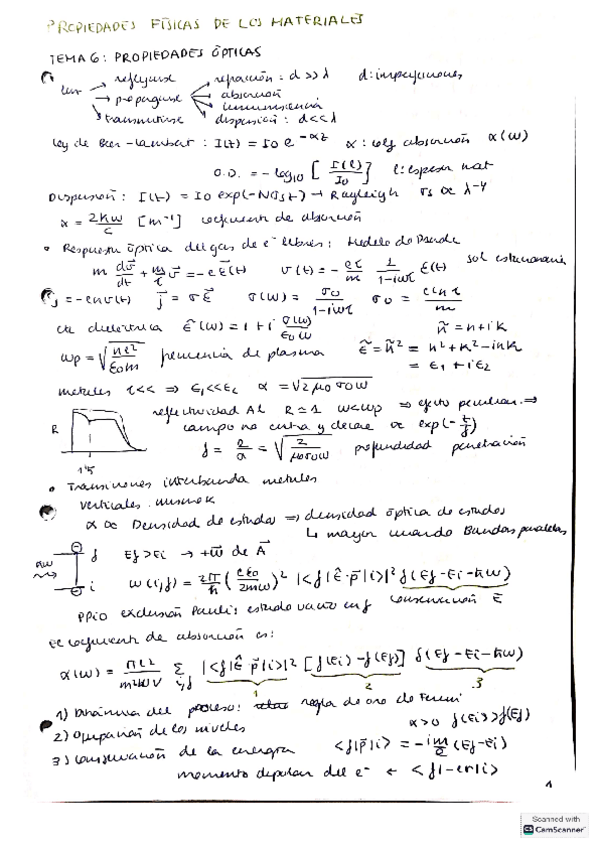 PROPIEDADES FÍSICAS DE LOS MATERIALES
TEMA 6: PROPIEDADES ÓPTICAS
luz → reflejarse
→ propagarse
→ transmitirse
refracción: d >> λ d: imperfecciones
absorción
luminiscencia
dispersión: d << λ
ley de Beer-Lambert: I(z) = I0 e^{-αz} α: coef absorción α(ω)
O.D. = -log10 [I(l)/I0] l: espesor mat
Dispersión: I(z) = I0 exp(-Nσs z) → Rayleigh σs ∝ λ^-4
α = 2kω/c [m^-1] coeficiente de absorción
• Respuesta óptica del gas de e- libres: Modelo de Drude
m dv/dt + m/τ v = -e E(t) v(t) = - eτ/m 1/(1-iωτ) E(t) sol estacionaria
j = -env(t) j = σE σ(ω) = σ0/(1-iωτ) σ0 =
cte dieléctrica ε(ω) = 1 + i σ(ω)/(ε0 ω) ñ = n + ik
ωp = √(ne²/ε0m) frecuencia de plasma ε̃ = ñ² = n² + k² - ink
= ε1 + iε2
metales τ<< ⇒ ε1 << ε2 α = √2μ0σ0ω
R
reflectividad Al R ≃ 1 ω<ωp ⇒ efecto peculiar ⇒
campo no entra y decae ∝ exp(-z/δ)
1'5
δ = 2/α = √(2/μ0σ0ω) profundidad penetración
• Transiciones interbanda metales
verticales. mismo k
α ∝ Densidad de estados ⇒ densidad óptica de estados
↳ mayor cuando Bandas paralelas
ħω
f
i
Ef > Ei → +ω de A
W(i,f) = 2π/ħ (eE0/2mω)² |<f|ε̂·p|i>|² δ(Ef - Ei - ħω)
conservación E
PPio exclusión Pauli: estado vacío en f
El coeficiente de absorción es:
α(ω) = πe²/m²ωV Σ i,f |<f|ε̂ p|i>|² [f(Ei) - f(Ef)] δ(Ef - Ei - ħω)
1 2 3
1) Dinámica del proceso: regla de oro de Fermi
2) Ocupación de los niveles α>0 f(Ei) > f(Ef)
3) Conservación de la energía <f|p|i> = -i m/e (Ef - Ei)
momento dipolar del e- ← <f|-er|i>
1
Scanned with
CS CamScanner